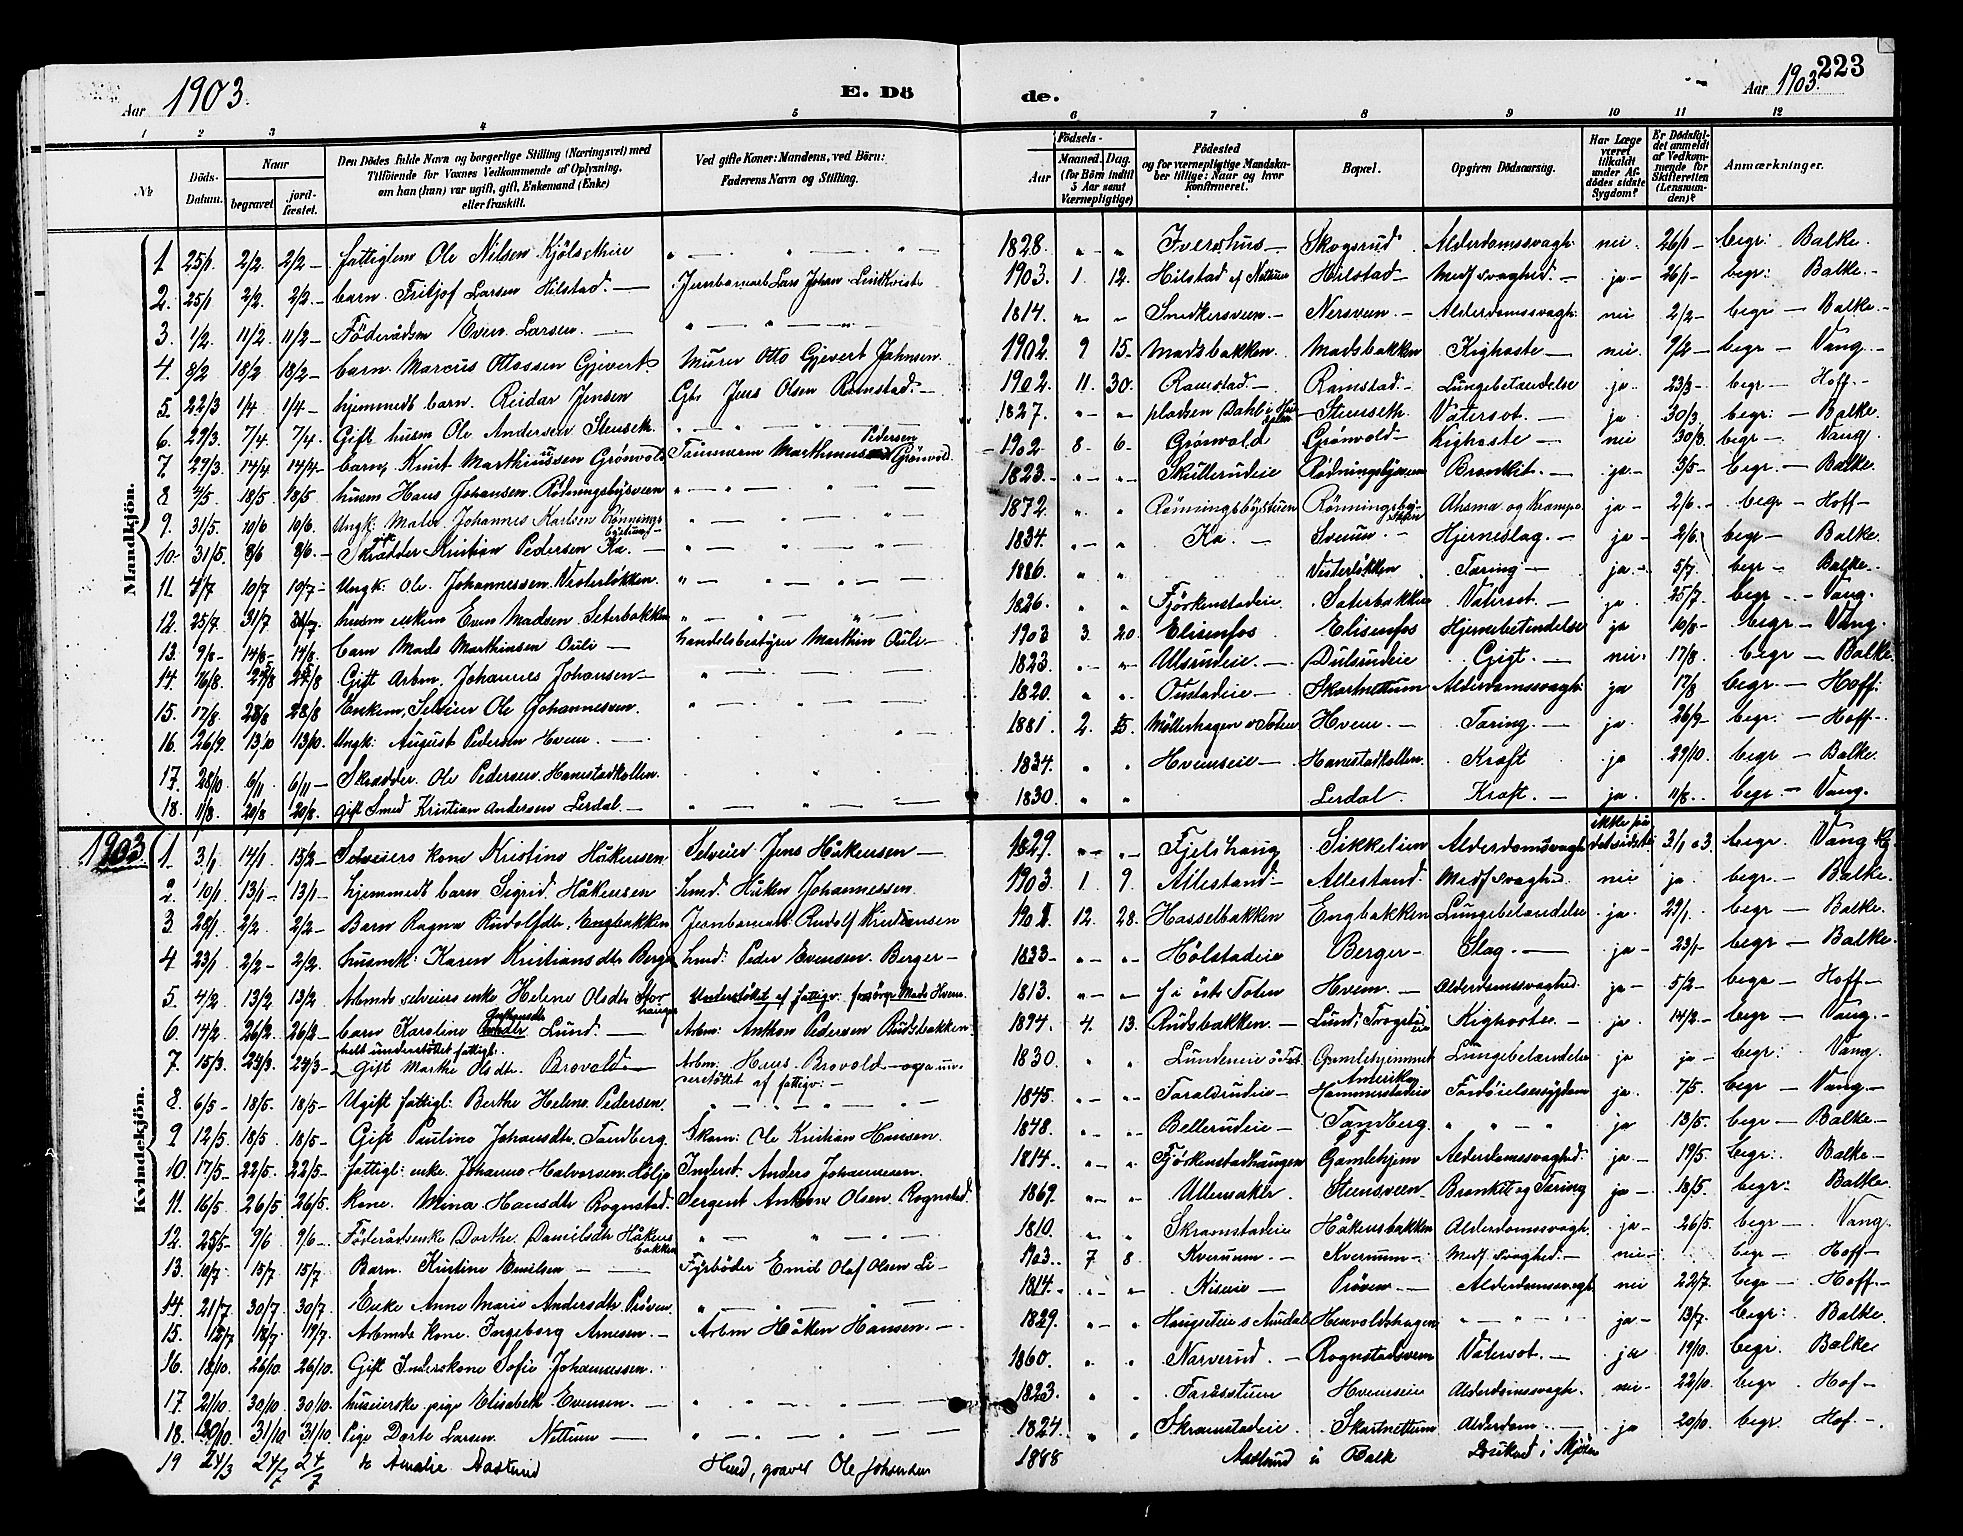 Aar 1903.
E. Dö
de.
Aar 1903.
223
1 2 3 4 5 6 7 8 9 10 11 12
Nr
Döds-Datum.
Naar
begravet
jord-fæstet.
Den Dödes fulde Navn og borgerlige Stilling (Næringsvei) med
Tilföiende for Voxnes Vedkommende af Oplysning,
om han (hun) var ugift, gift, Enkemand (Enke)
eller fraskilt.
Ved gifte Koner: Mandens, ved Börn:
Faderens Navn og Stilling.
Födsels-
Aar
Maaned. Dag.
(for Börn indtil
5 Aar samt
Værnepligtige)
Födested
og for værnepligtige Mandska-
ber tillige: Naar og hvor
Konfirmeret.
Bopæl.
Opgiven Dödsaarsag.
Har Læge
været
tilkaldt
under Af-
dödes sidste
Sygdom?
Er Dödsfal-
det anmeldt
af Vedkom-
mende for
Skifteretten
(Lensman-
den)?
Anmærkninger.
Mandkjön.
1 25/1. 2/2. 2/2 – fattiglem Ole Nilsen Kjölset 1828. Skogsrud Alderdomssvagh. nei 26/1 – begr: Balke.
2. 25/1 2/2. 2/2. – barn Fritjof Larsen Hilstad – Jernbanearb Lars Johan Lindkvist 1903. 1. 12. Hilstad Hilstad – Medf svaghed. – ja – 26/1 – begr: Balke. –
3. 1/2. 11/2 11/2 – Föderådsm Even Larsen. – 1814. Snedkersveen. – Nersveen – Alderdomssvagh. nei 2/2 – begr – Balke. –
4. 8/2 18/2 18/2 – barn Marcus Ottossen Gjevert. Murer Otto Gjevert Johnsen. 1902. 9 15 – Madsbakken. Madsbakken Kighoste – nei 9/2 – begr – Vang –
5. 22/3 1/4. 1/4 – hjemmedt barn. Reidar Jensen Gbr Jens Olsen Ramstad. – 1902. 11. 30. Ramstad. – Ramstad. – Lungebetændelse ja 23/3 – begr Hoff –
6. 29/3. 7/4. 7/4 – Gift husm Ole Andersen Stenseth. 1827. pladsen Dahl Stenseth. Vatersot. – ja 30/3. begr: – Balke.
7. 27/3. 14/4 14/4 – barn Knut Marthinussen Grönvold Tömmerm Marthinus Pedersen Grönvold 1902 8 – 6. Grönvold Grönvold – Kighoste – nei 30/3. begr – Vang.
8 18/5 18/5 husm Hans Johansen 1823. – Skutterudeie Bronkit. – ja – 3/5 – begr. – Balke.
9. 31/5. 10/6 10/6. Ungk. Maler Johannes Karlsen Rönningsbystuen – 1872. Rönningsbystuen Ahsma og Krampe ja – 2/6 – begr – Hoff –
10. 31/5 8/6 8/6. – gift Skrædder Kristian Pedersen Ka. – 1834. Ka. – Sveum. – Hjerneslag. – ja – 2/6 begr – Balke.
11. 4/7 10/7 10/7 – Ungk. Ole Johannessen Vesterløkken. 1886. Vesterløkken Tæring – ja – 5/7 begr – Balke.
12. 25/7. 31/7 31/7 husm enkem Even Madsen Seterbakken 1826. Fjörkenstadeie Sæterbakken Vatersot. – ja 25/7. begr – Vang.
13. 9/8 – 14/8 – 14/8. barn Mads Marthinsen Ouli – handelsbestyrer Marthin Ouli – 1903 3. 20. Elisenfos Elisenfos Hjernebetendelse ja 10/8 – begr – Vang.
14. 16/8. 25/8 25/8 Gift Arbm. Johannes Johansen – 1823. Ulsrudeie. – Dulsrudeie Gigt. – nei. 17/8. begr – Balke.
15. 17/8. 28/8 28/8 Enkem, Selveier Ole Johannesen. 1820. Oustadeie – Skartnettum Alderdomssvagh. ja 17/8 begr. – Hoff.
16. 26/9. 13/10 13/10. Ungk: August Pedersen Hvem. – 1881. 2. 15. Möllerhagen v Toten Hvem. – Tæring – ja 26/9 – begr. – Hoff –
17. 28/10 6/11 6/11 – Skrædder Ole Pedersen Hamstadkollen. 1834. Hvemseie – Hamstadkollen. Kræft ja 29/10. begr – Balke
18. 11/8. 20/8 20/8. gift Smed Kristian Andersen Lerdal. – 1830. Lerdal. Kræft. – ja. 11/8. begr – Vang.
1903
Kvindekjön.
1. 3/1 14/1 15/2 – Selveiers kone Kristine Håkensen Selveier Jens Håkensen – 1829. Fjelshaug Sikkelien Alderdomssvagh ikke på det sidste 3/1 03. begr. Vang
2. 10/1 – 13/1 – 13/1 – hjemmedt barn Sigrid Håkensen hmd. Håken Johannessen. 1903. 1. 9. Allestand – Allestand. Medf svaghed. nei ja begr. – Balke.
3. 28/1. 2/2. 2/2 – Barn Ragna Rudolfsdtr. Engbakken Jernbanearb Rudolf Kristiansen 12. 28. Hasselbakken Engbakken Lungebetændelse ja. 29/1. begr – Balke.
4 23/1 2/2 – 2/2. husmk: Karen Kristiansdtr Berger hmd: Peder Evensen Berger – 1833 – Hölstadeie Berger – Slag. – ja – 23/1 – begr – Balke.
5. 4/2. 13/2 13/2 Arbmds selveiers enke Helene Olsdtr Storhaugen Understöttet af fattigv: forsörge Mads Hvem. 1813. f i östr Toten Hvem. – Alderdomssvaghed. ja – 5/2 – begr – Hoff –
6. 14/2. 26/2 26/2 – barn Karoline Lund. – Arbm: Anton Pedersen Rudsbakken. 1894. 4. 13. Rudsbakken. – Lund, Kighoste. – ja. 14/2 – begr – Vang. –
7. 15/3. 24/3. 24/3 – helt understöttet fattigl. Gift Marthe Olsdtr. Brovold – Arbm. Hans Brovold – ogsa understöttet af fattigv: – 1830. Lundeneie ö Tot. Gamlehjemmet Lungebetændelse ja ja – begr: Vang.
8 6/5 – 18/5. 18/5 – Ugift fattigl: Berthe Helene Pedersen. 1845. Taraldrudeie – Amerika Hammerstadeie Fordöielsessygdom ja. 7/5. begr – Vang –
9. 12/5. 18/5. 18/5 – Gift Pauline Johansdtr. Tandberg. Skom: Ole Kristian Hansen. 1848. Bellerudeie – Tandberg. ja 13/5. begr – Balke –
10. 17/5 – 22/5. 22/5 – fattigl: enke Johanne Halvorsen Höljo Inderst. Anders Johannesen. 1814. Fjörkenstadhaugen Gamlehjem Alderdomssvaghed. ja – 19/5. begr: Balke –
11. 16/5. 26/5. 26/5. kone. Mina Hansdtr Rognstad. Sergent Anton Olsen Rognstad. 1869. Ullensaker. Steensveen. Bronkit og Tæring ja – 18/5. begr. Balke.
12. 25/5 – 9/6 9/6 – Föderådsenke Dorthe Danielsdtr Håkensbakken 1810. Skramstadeie Håkensbakken Alderdomssvagh. ja – 26/5. begr – Vang
13. 10/7. 15/7 15/7. Barn. Kristine Emilsen – – Fyrböder Emil Olaf Olsen Li – 1903.. 7 8. Kvernum. – Kvernum – Medf svaghed. – nei – begr – Hoff –
14. 21/7. 30/7. 30/7. Enke Anne Marie Andersdtr Pröven. 1814. Niseie – Pröven. – Alderdomssvagh. nei 22/7. begr – Hoff –
15. 12/7 17/7. 17/7. Arbmds kone. Ingeborg Arnesen. – Arbm Håken Hansen. – 1829. Haugseie s Aurdal Henvoldshagen ja – 13/7. begr: Balke.
16. 18/10. 26/10 26/10. Gift Inderskone Sofie Johannessen. 1860. Narverud. – Rognstadsveen Vatersot. – ja 19/10. begr. Balke
17. 21/10. 30/10. 30/10. huseierske pige Elisabeth Evensen. – 1823. Taråsstuen Hvemseie Alderdomssvagh. nei 22/10. begr Hof –
18. 20/10. 31/10 31/10 Pige Dorte Larsen Nettum – 1824. Skramstadeie Skartnettum Alderdom. – ja 20/10. begr. Hof. –
19 24/3 24/7 24/7 Amalie Aaslund Ole Johansen 1888 Aaslund i Balk Druknet i Mjösen